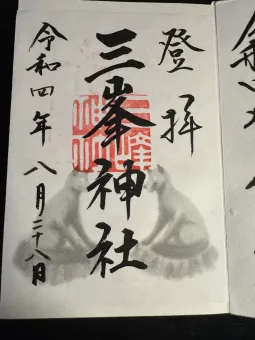 登拝
三峯神社
令和四年八月二十八日